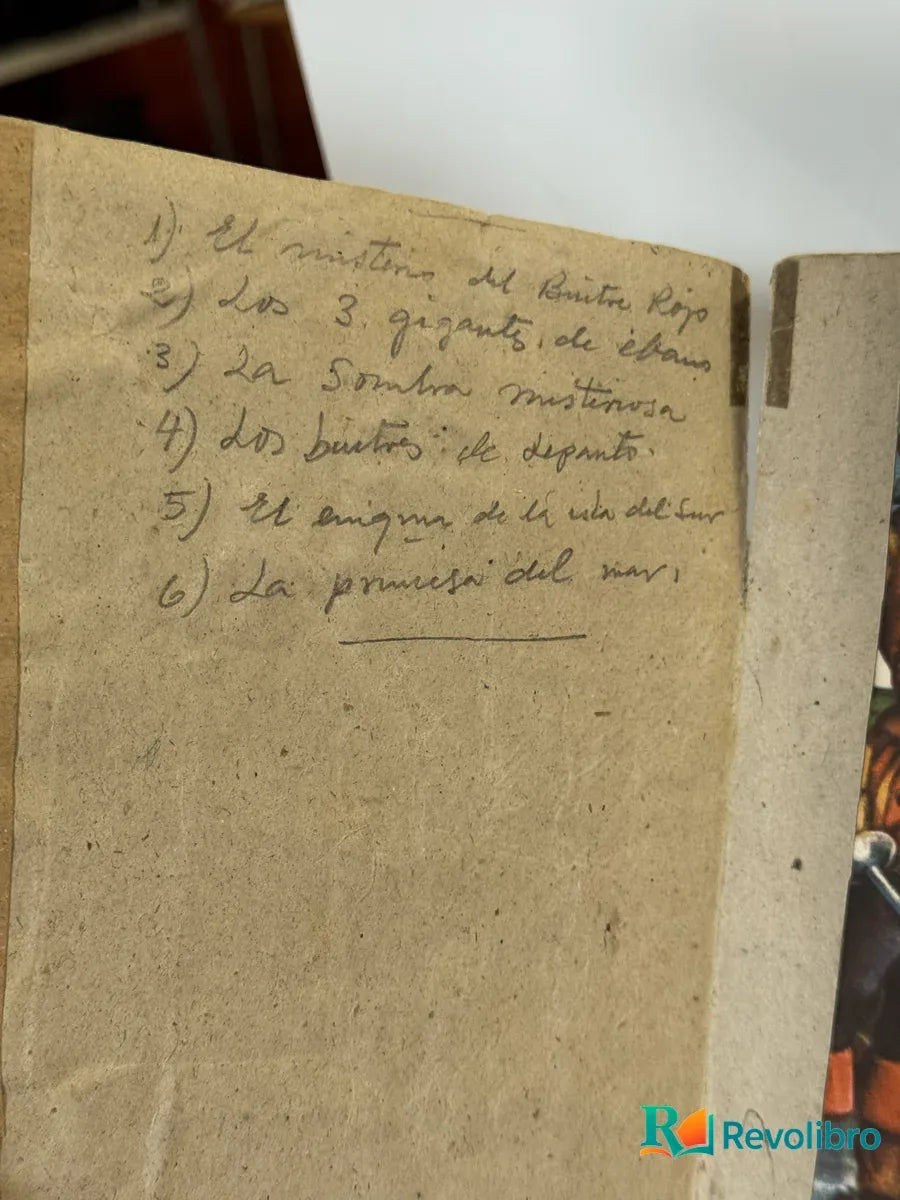 1) El misterio del Buitre Rojo
2) Los 3 gigantes de ébano
3) La Sombra misteriosa
4) Los buitres de Lepanto.
5) El enigma de la isla del Sur
6) La princesa del mar.
Revolibro